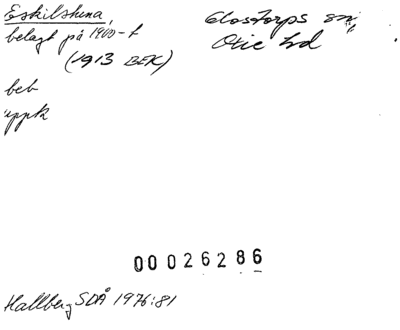 Eskilstuna,
belagt på 1900-t
(1913 BEK)
Glostorps sn,
Oxie hd
beb
uppk
00026286
Hallberg SDÅ 1976:81